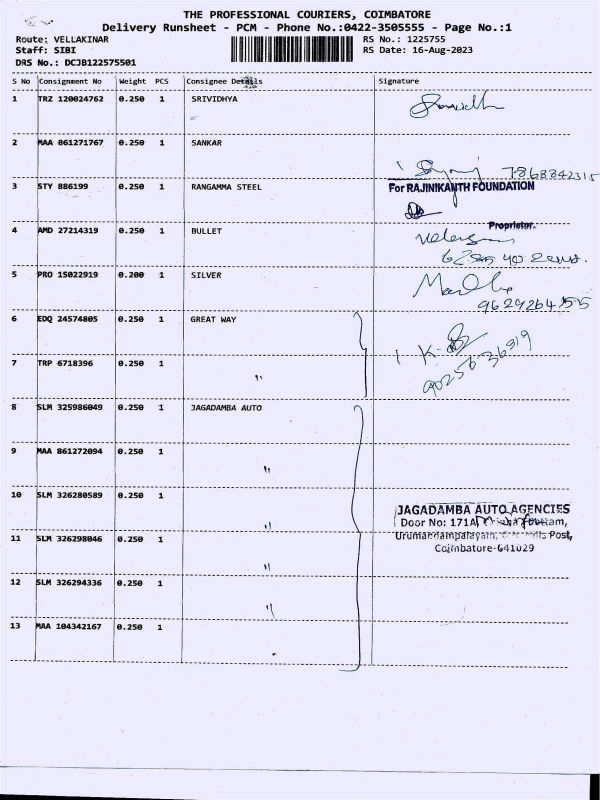 THE PROFESSIONAL COURIERS, COIMBATORE
Delivery Runsheet - PCM - Phone No.:0422-3505555 - Page No.:1
Route: VELLAKINAR RS No.: 1225755
Staff: SIBI RS Date: 16-Aug-2023
DRS No.: DCJB122575501
S No Consignment No Weight PCS Consignee Details Signature
1 TRZ 120024762 0.250 1 SRIVIDHYA
2 MAA 861271767 0.250 1 SANKAR
7868842315
3 STY 886199 0.250 1 RANGAMMA STEEL For RAJINIKANTH FOUNDATION
Proprietor.
4 AMD 27214319 0.250 1 BULLET
5 PRO 15022919 0.200 1 SILVER
9629264355
6 EDQ 24574805 0.250 1 GREAT WAY
7 TRP 6718396 0.250 1
"
9025636319
8 SLM 325986049 0.250 1 JAGADAMBA AUTO
9 MAA 861272094 0.250 1
"
10 SLM 326280589 0.250 1
"
JAGADAMBA AUTO AGENCIES
Door No: 171A,
Post,
Coimbatore-641029
11 SLM 326298046 0.250 1
"
12 SLM 326294336 0.250 1
"
13 MAA 104342167 0.250 1